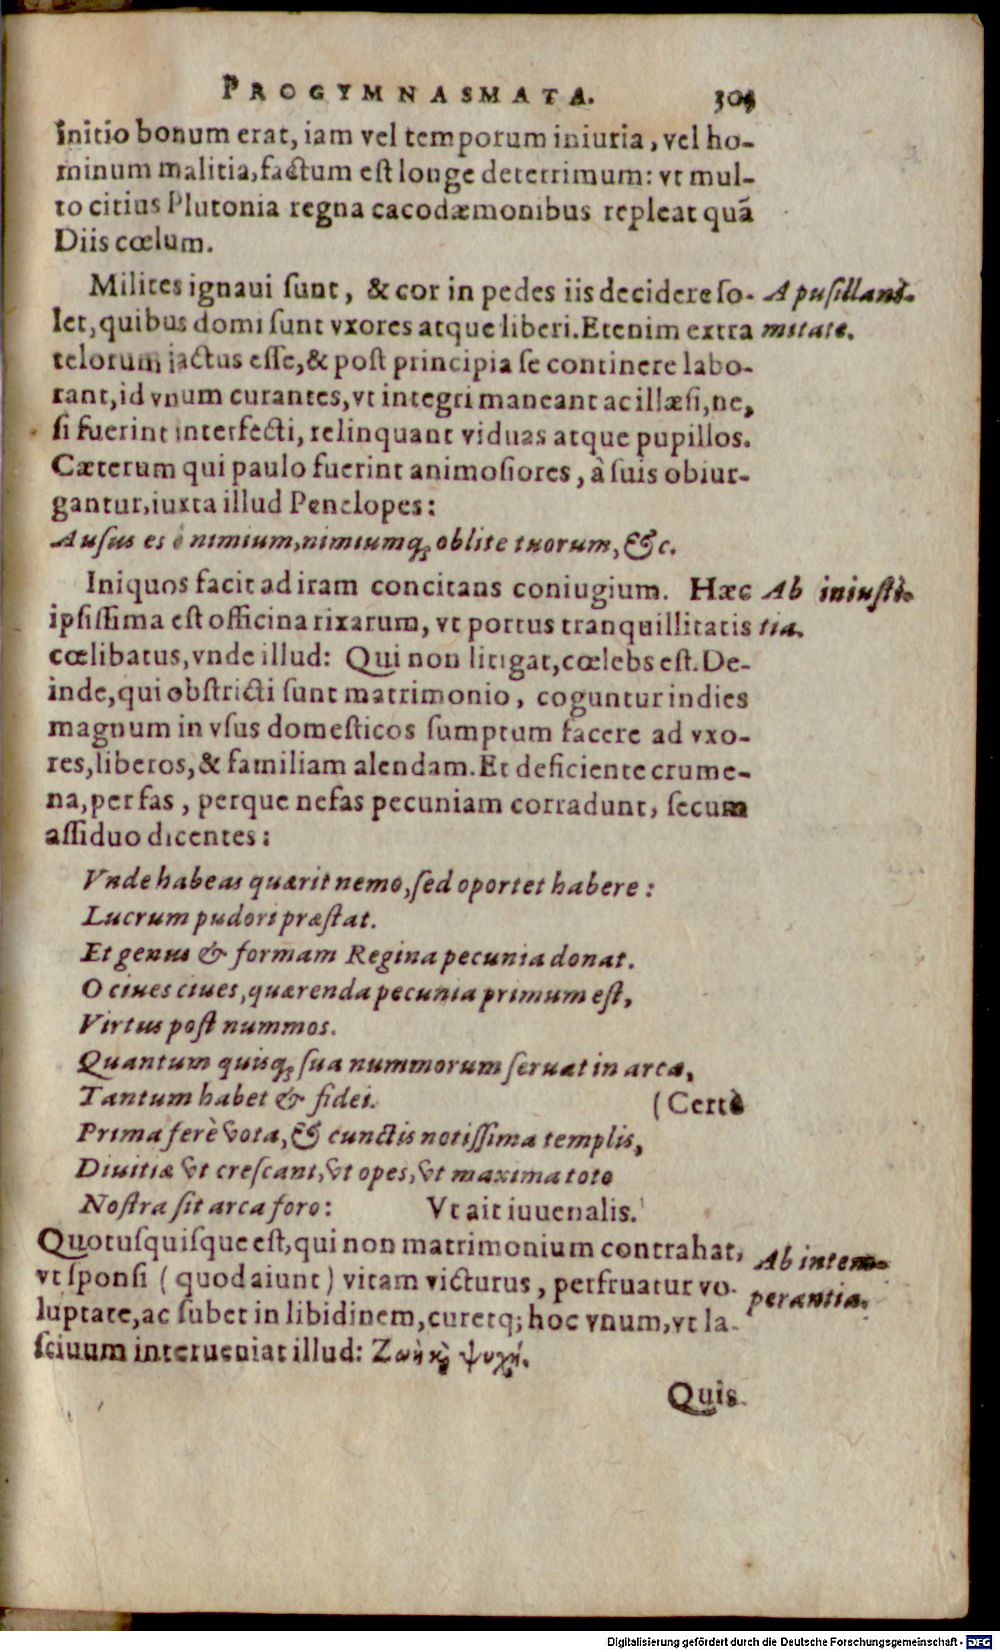 PROGYMNASMATA. 309
initio bonum erat, iam vel temporum iniuria, vel ho-
minum malitia, factum est longe deterrimum: vt mul-
to citius Plutonia regna cacodæmonibus repleat quã
Diis cœlum.
Milites ignaui sunt, & cor in pedes iis decidere so- A pusillani-
let, quibus domi sunt vxores atque liberi. Etenim extra mitate.
telorum iactus esse, & post principia se continere labo-
rant, id vnum curantes, vt integri maneant ac illæsi, ne,
si fuerint interfecti, relinquant viduas atque pupillos.
Cæterum qui paulo fuerint animosiores, à suis obiur-
gantur, iuxta illud Penelopes:
Ausus es ô nimium, nimiumq; oblite tuorum, &c.
Iniquos facit ad iram concitans coniugium. Hæc Ab iniusti-
ipsissima est officina rixarum, vt portus tranquillitatis tia.
cœlibatus, vnde illud: Qui non litigat, cœlebs est. De-
inde, qui obstricti sunt matrimonio, coguntur indies
magnum in vsus domesticos sumptum facere ad vxo-
res, liberos, & familiam alendam. Et deficiente crume-
na, per fas, perque nefas pecuniam corradunt, secum
assiduo dicentes:
Vnde habeas quærit nemo, sed oportet habere:
Lucrum pudori præstat.
Et genus & formam Regina pecunia donat.
O ciues ciues, quærenda pecunia primum est,
Virtus post nummos.
Quantum quisq; sua nummorum seruat in arca,
Tantum habet & fidei. (Certè
Prima ferè vota, & cunctis notissima templis,
Diuitiæ vt crescant, vt opes, vt maxima toto
Nostra sit arca foro: Vt ait iuuenalis.
Quotusquisque est, qui non matrimonium contrahat, Ab intem-
vt sponsi (quod aiunt) vitam victurus, perfruatur vo- perantia.
luptate, ac subet in libidinem, curetq; hoc vnum, vt la-
sciuum interueniat illud: Ζωὴ ϗ̀ ψυχή.
Quis
Digitalisierung gefördert durch die Deutsche Forschungsgemeinschaft - DFG